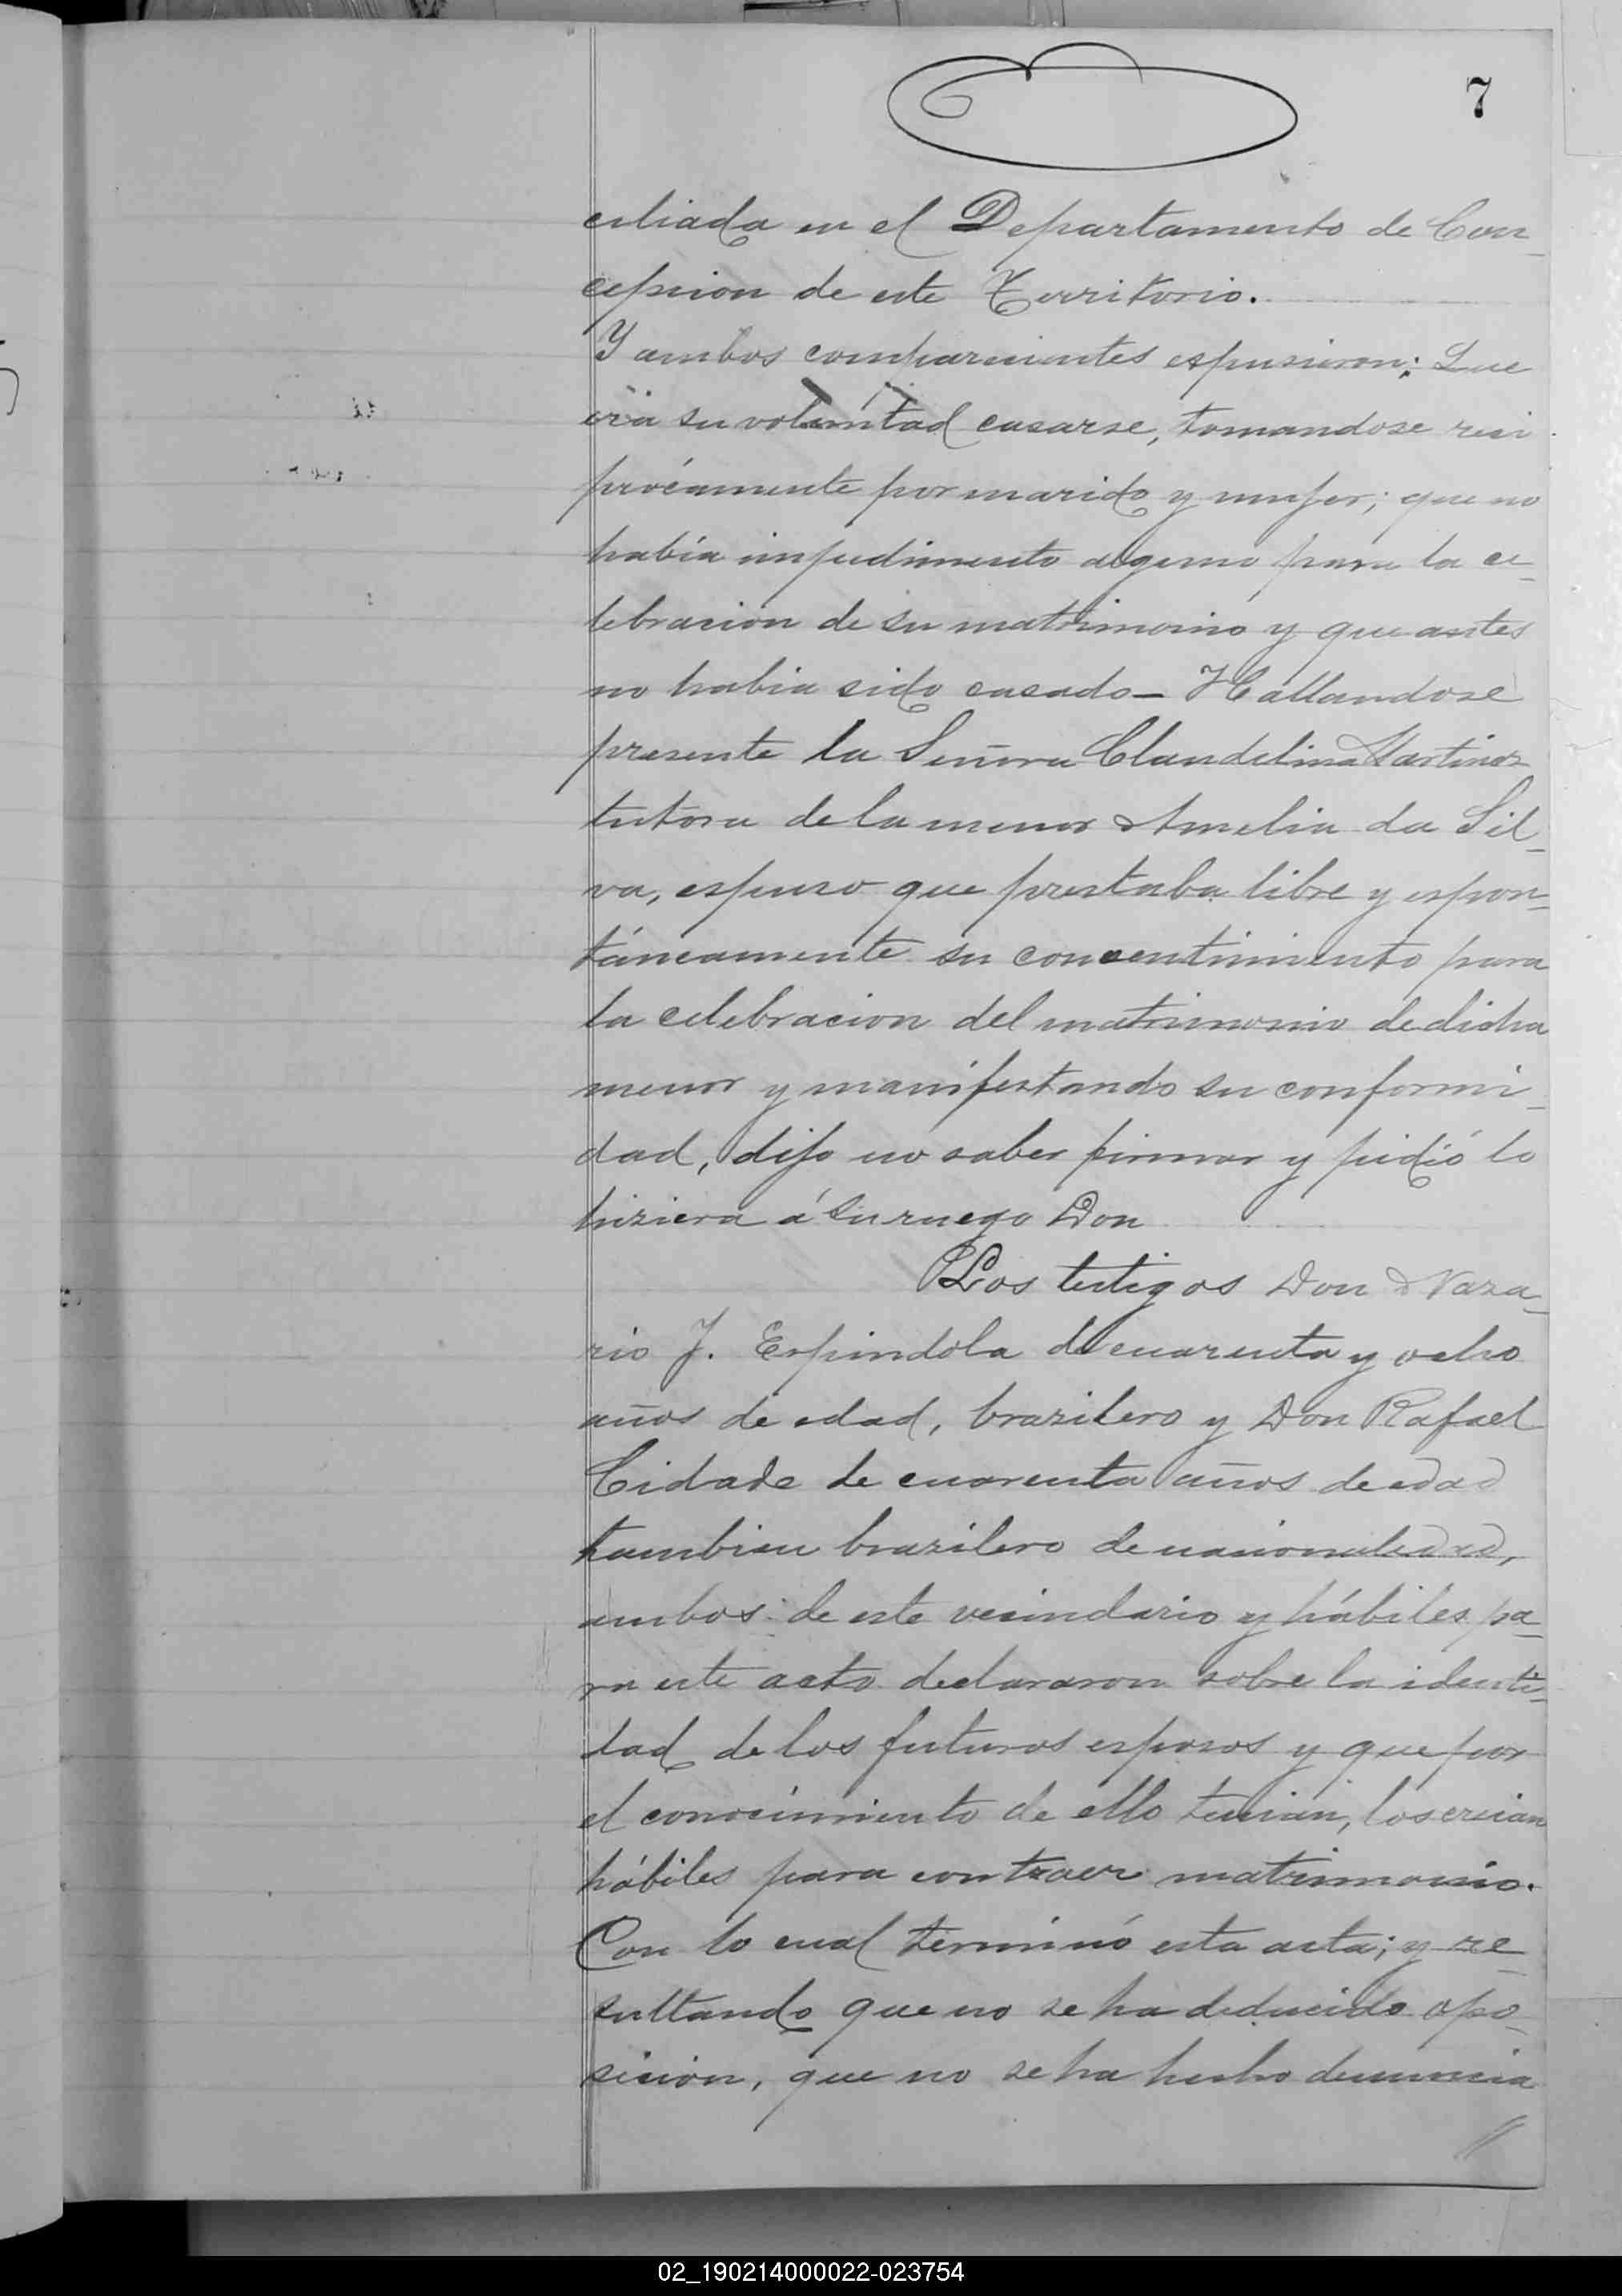 7
ciliada en el Departamento de Con_
cepcion de este Territorio.
Y ambos comparecientes espusieron: Que
era su voluntad casarse, tomandose reci
procamente por marido y mujer; que no
había impedimento alguno para la ce_
lebracion de su matrimonio y que antes
no habia sido casado_ Hallandose
presente la Señora Claudelina Martinez
tutora de la menor Amelia da Sil_
va, espuso que prestaba libre y espon_
táneamente su consentimiento para
la celebracion del matrimonio de dicha
menor y manifestando su conformi_
dad, dijo no saber firmar y pidió lo
hiziera á su ruego Don
Los testigos Don Naza_
rio J. Espindola de cuarenta y ocho
años de edad, brazilero y Don Rafael
Cidade de cuarenta años de edad
tambien brazilero de nacionalidad,
ambos de este vecindario y hábiles pa_
ra este acto declararon sobre la identi_
dad de los futuros esposos y que por
el conocimiento de ello tenian, los creian
hábiles para contraer matrimonio.
Con lo cual terminó esta acta; y re_
sultando que no se ha deducido opo_
sicion, que no se ha hecho denuncia
02_190214000022-023754